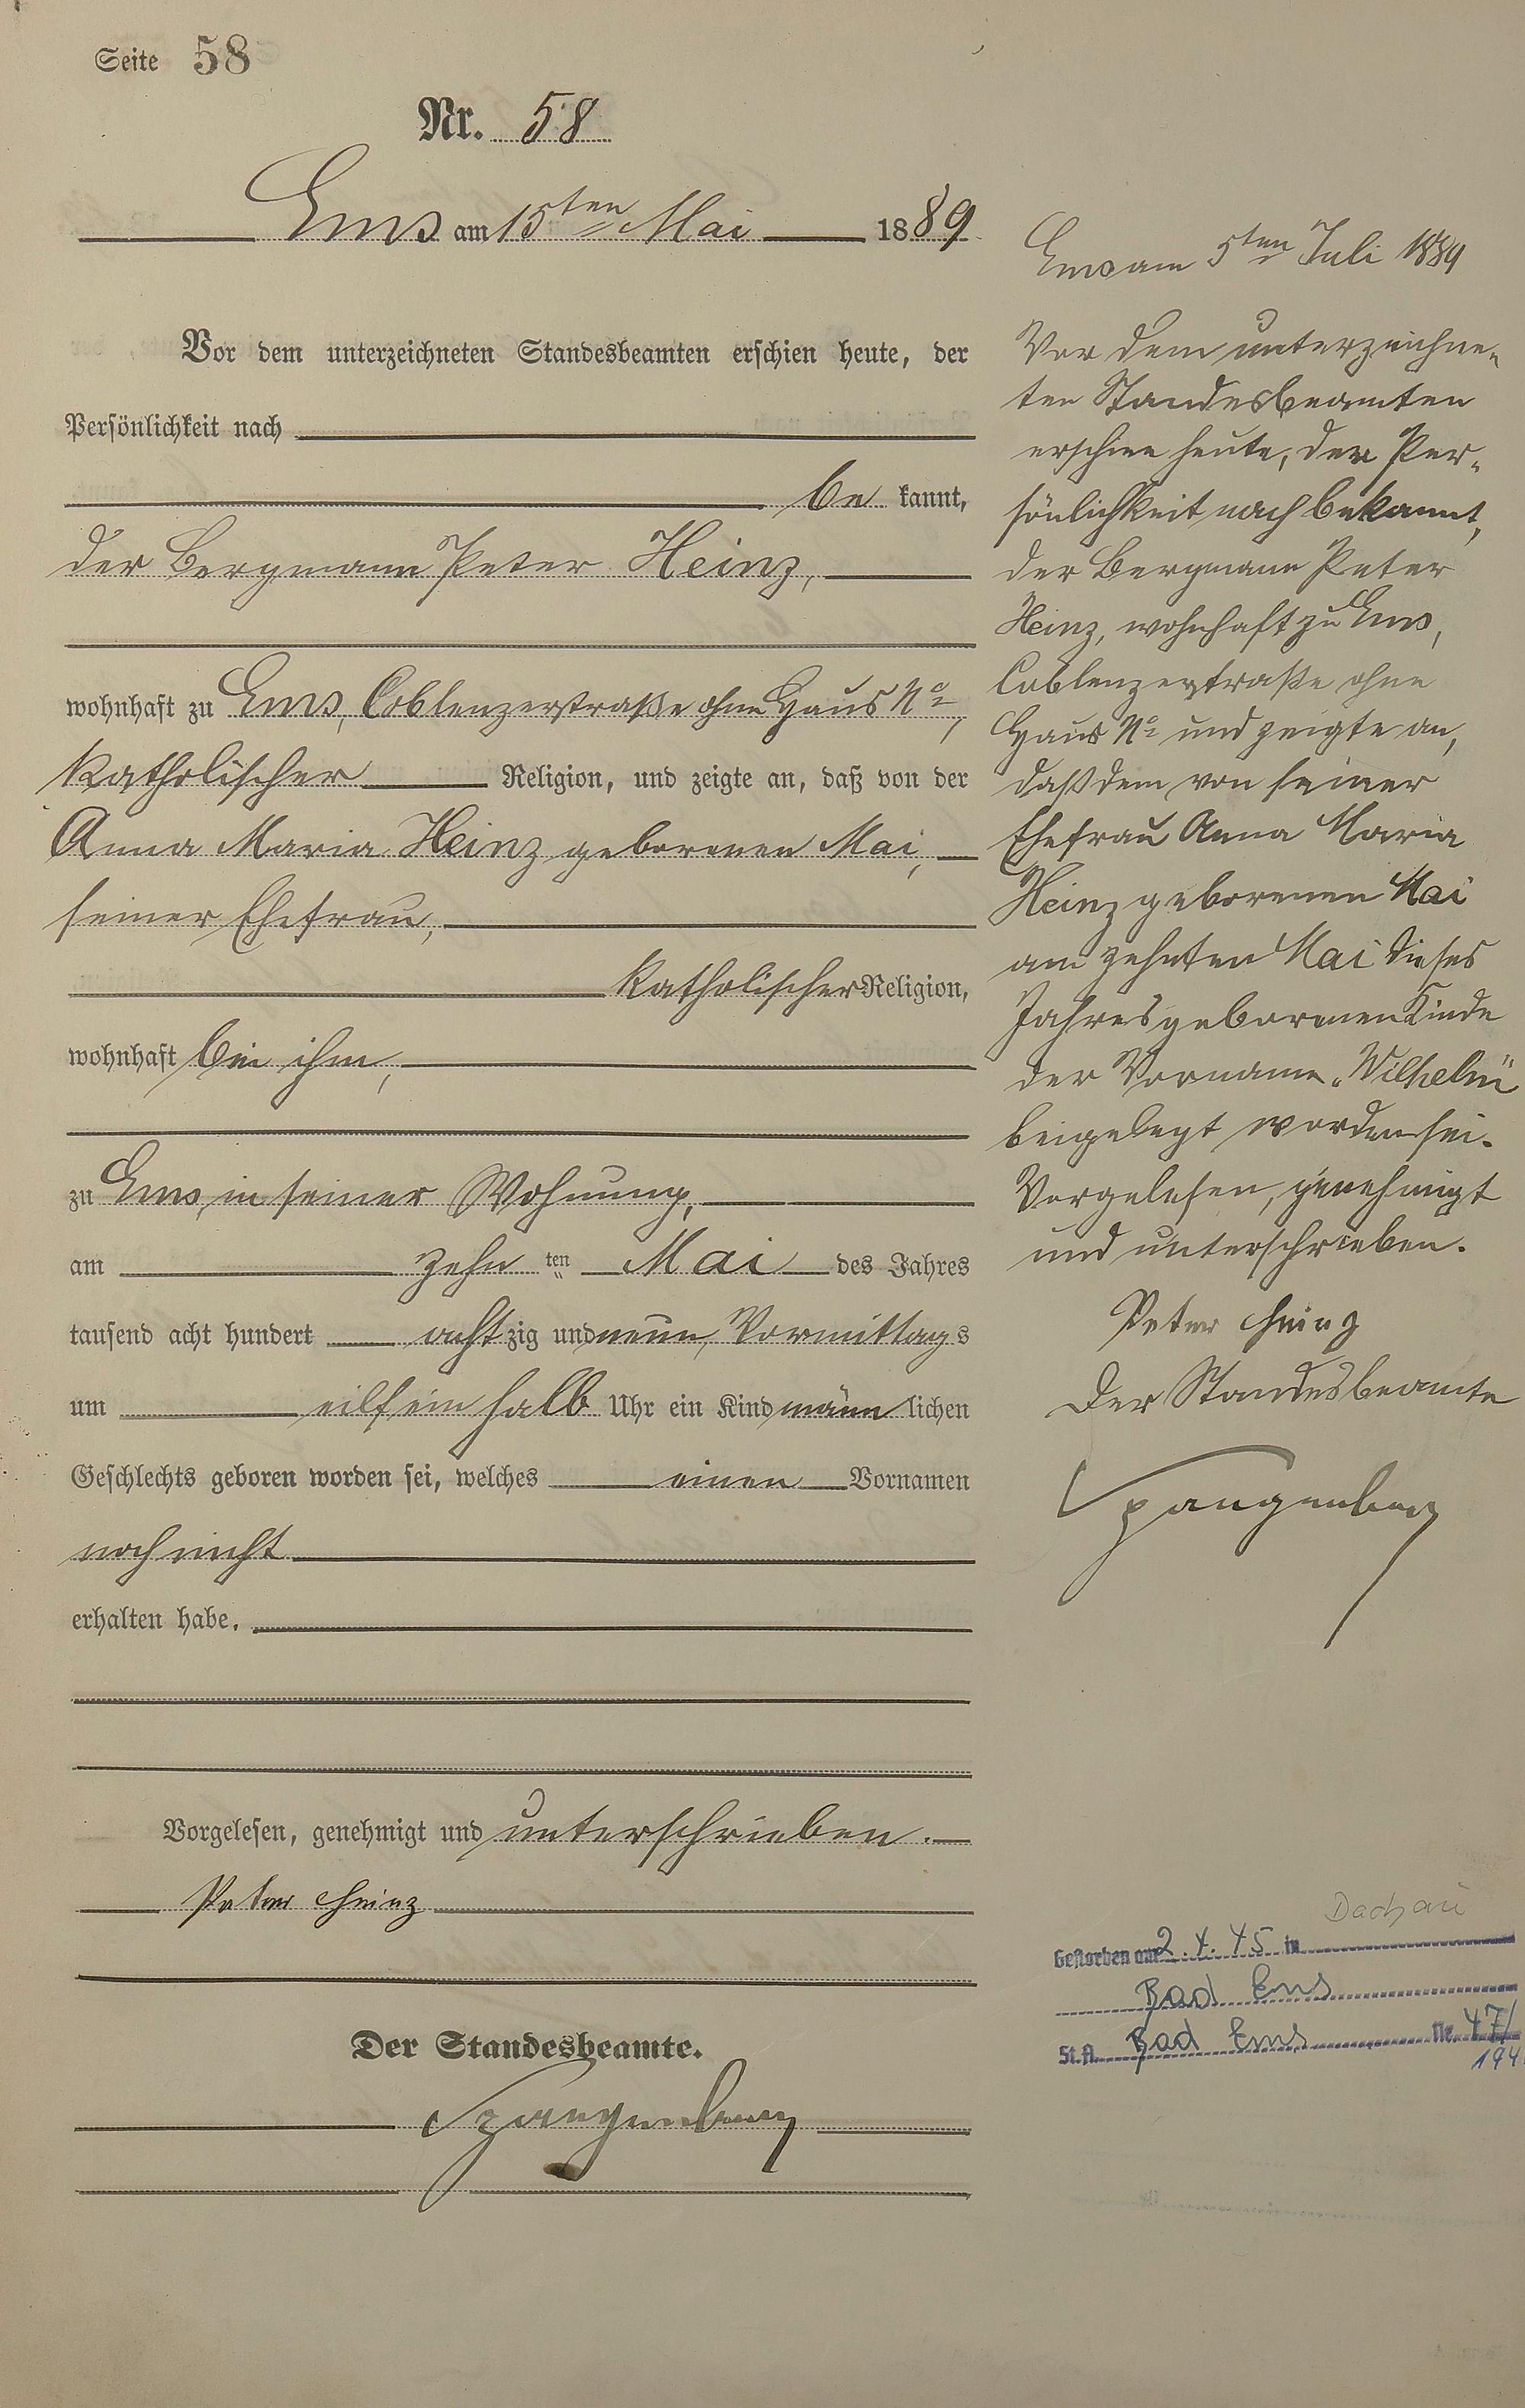 Seite 58
Nr. 58
Ems am 15ten Mai 1889
Vor dem unterzeichneten Standesbeamten erschien heute, der
Persönlichkeit nach
be kannt,
der Bergmann Peter Heinz,
wohnhaft zu Ems, Coblenzerstraße ohne Haus No,
katholischer Religion, und zeigte an, daß von der
Anna Maria Heinz geborenen Mai,
seiner Ehefrau,
katholischer Religion,
wohnhaft bei ihm,
zu Ems, in seiner Wohnung,
am zehn ten Mai des Jahres
tausend acht hundert acht zig und neun, Vormittags
um eilf ein halb Uhr ein Kind männ lichen
Geschlechts geboren worden sei, welches einen Vornamen
noch nicht
erhalten habe.
Vorgelesen, genehmigt und unterschrieben.
Peter Heinz
Der Standesbeamte.
Spangenberg
Ems am 5ten Juli 1889
Vor dem unterzeichne-
ten Standesbeamten
erschien heute, der Per-
sönlichkeit nach bekannt,
der Bergmann Peter
Heinz, wohnhaft zu Ems,
Coblenzerstraße ohne
Haus No und zeigte an,
daß dem von seiner
Ehefrau Anna Maria
Heinz geborenen Mai
am zehnten Mai dieses
Jahres geborenen Kinde
der Vorname „Wilhelm"
beigelegt worden sei.
Vorgelesen, genehmigt
und unterschrieben.
Peter Heinz
Der Standesbeamte
Spangenberg
Dachau
Gestorben am 2.4.45 in
Bad Ems
St.A. Bad Ems Nr. 47/
194